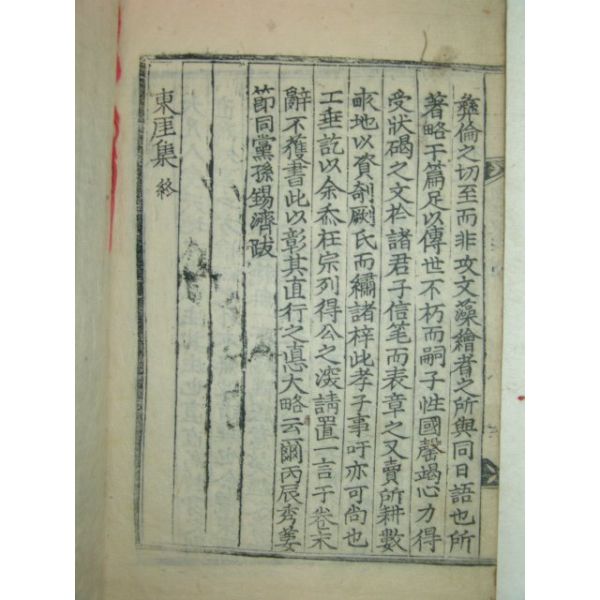 彝倫之切至而非攻文藻繪者之所與同日語也所
著略干篇足以傳世不朽而嗣子性國罄竭心力得
受狀碣之文於諸君子信笔而表章之又賣所耕數
畝地以資剞劂氏而繡諸梓此孝子事吁亦可尚也
工垂訖以余忝在宗列得公之深請置一言于卷末
辭不獲書此以彰其直行之悳大略云爾丙辰秀葽
節同黨孫錫濟跋
東厓集 終